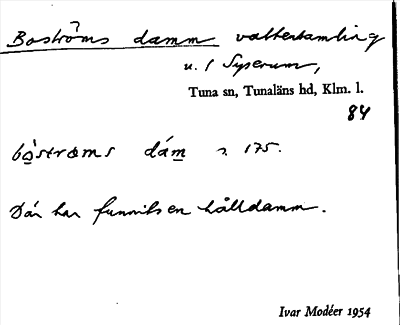 Boströms damm vattensamling
u. / Syserum,
Tuna sn, Tunaläns hd, Klm. l.
84
bòstrœms dám s. 175.
Där har funnits en hålldamm.
Ivar Modéer 1954